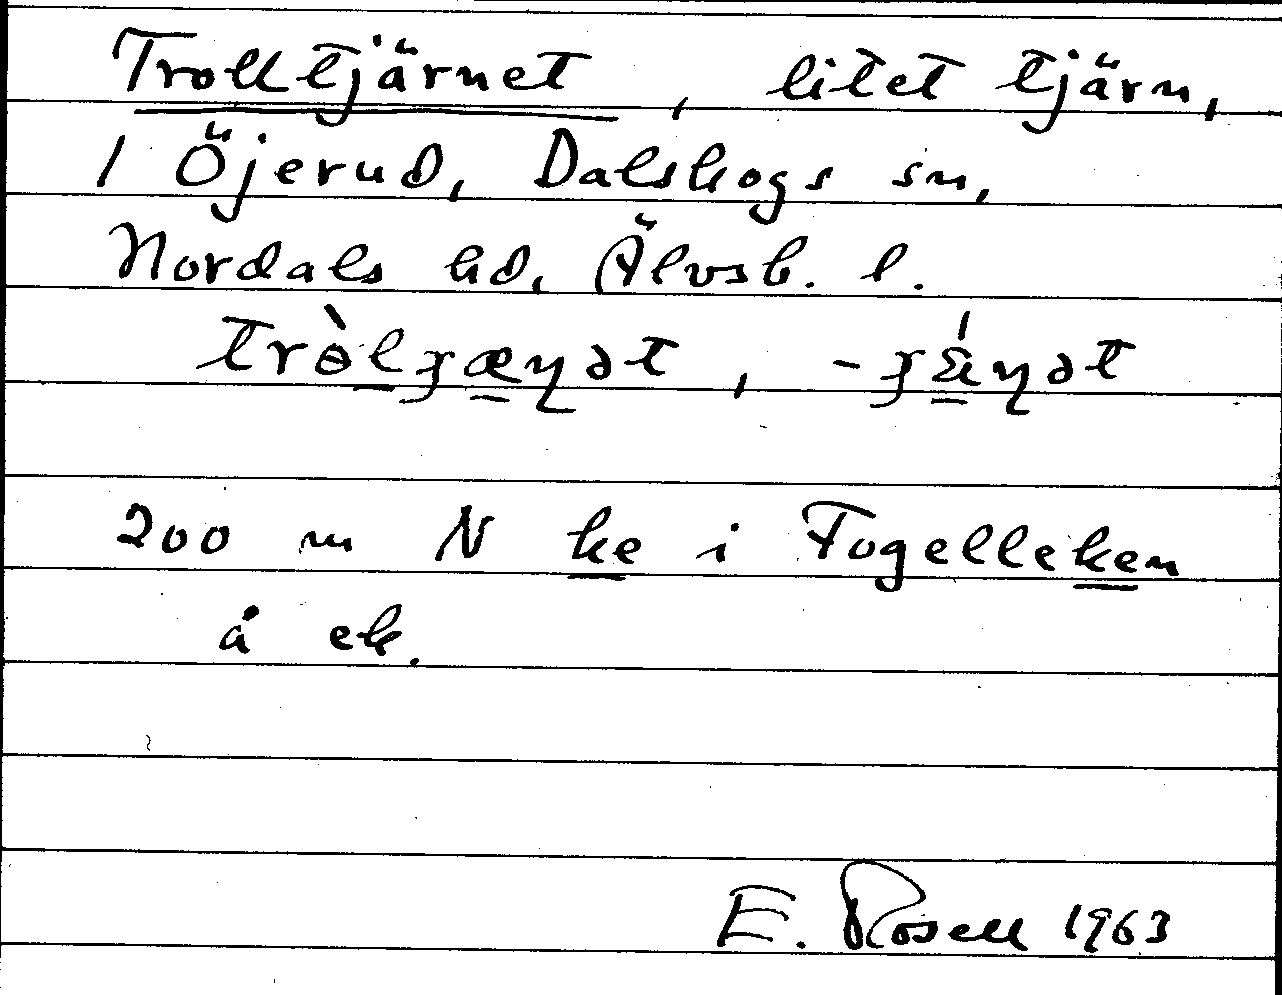 Trolltjärnet, litet tjärn,
1 Öjerud, Dalskogs sn,
Nordals hd, Älvsb. l.
200 m N ke i Fogelleken
å ek.
E. Rosell 1963